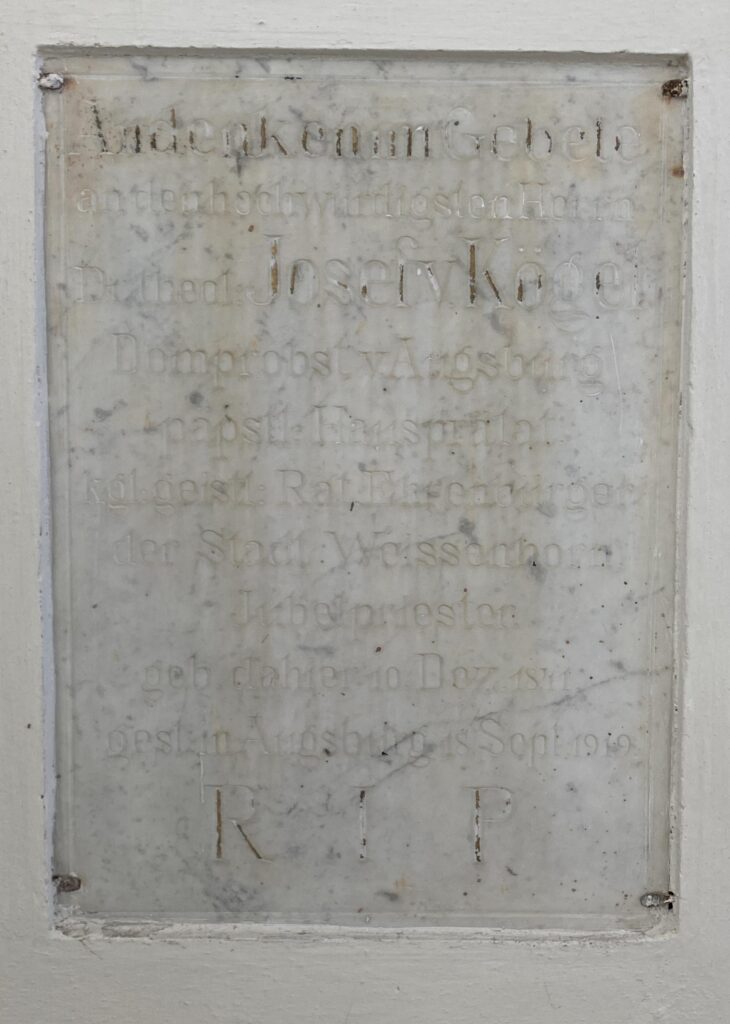 Andenken im Gebete
an den hochwürdigsten Herrn
Dr. theol: Josef v Kögel
Domprobst v Augsburg
päpstl: Hausprälat
kgl: geistl: Rat, Ehrenbürger
der Stadt Weissenhorn
Jubelpriester
geb dahier 10 Dez.
gest. in Augsburg 18 Sept. 1919
R I P